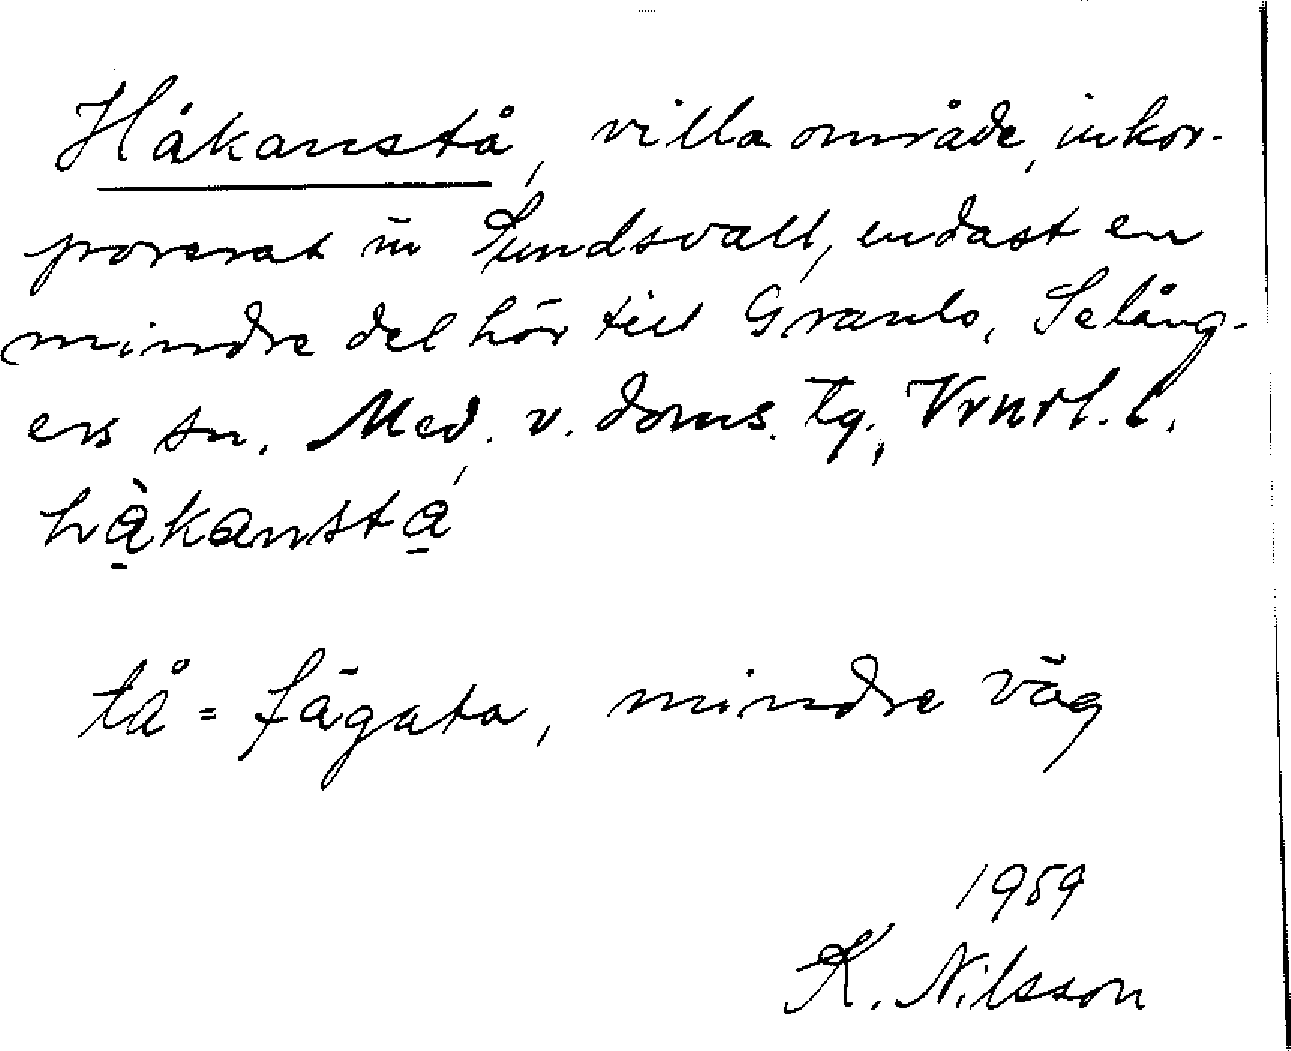 Håkanstå, villaområde, inkor-
porerat in Sundsvall, endast en
mindre del hör till Granlo, Selång-
ers sn. Med. v. doms. tg., Vrnrl. l.
hàkanstá
tå = fägata, mindre väg
1959
K. Nilsson